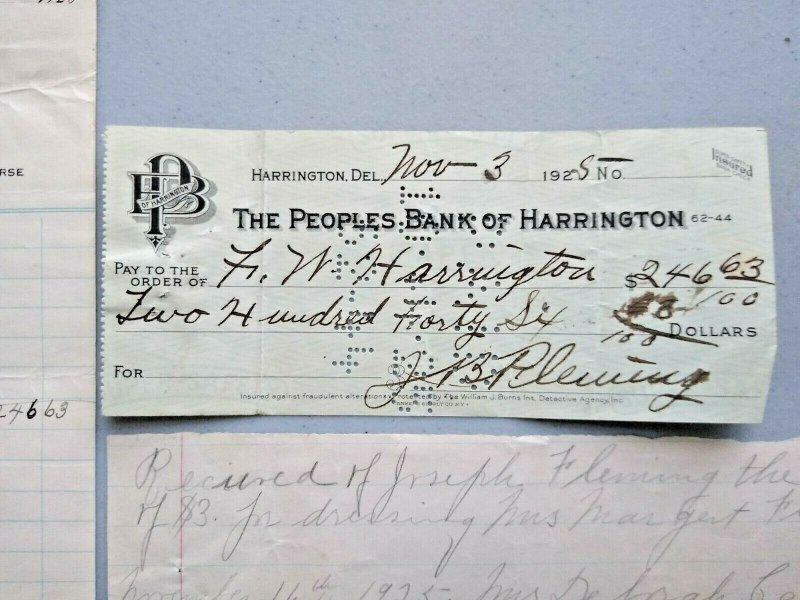 RSE
24663
HARRINGTON, DEL. Nov- 3 1925 No.
Insured
OF HARRINGTON
THE PEOPLES BANK OF HARRINGTON 62-44
PAY TO THE ORDER OF F. W. Harrington $246 63/100
Two Hundred Forty Six 63/100 DOLLARS
FOR J B Fleming
Insured against fraudulent alterations & protected by The William J. Burns Int. Detective Agency, Inc.
Recieved of Joseph Fleming the
of $3. for dressing Mrs Margert
November 16th 1925 Mrs Deborah